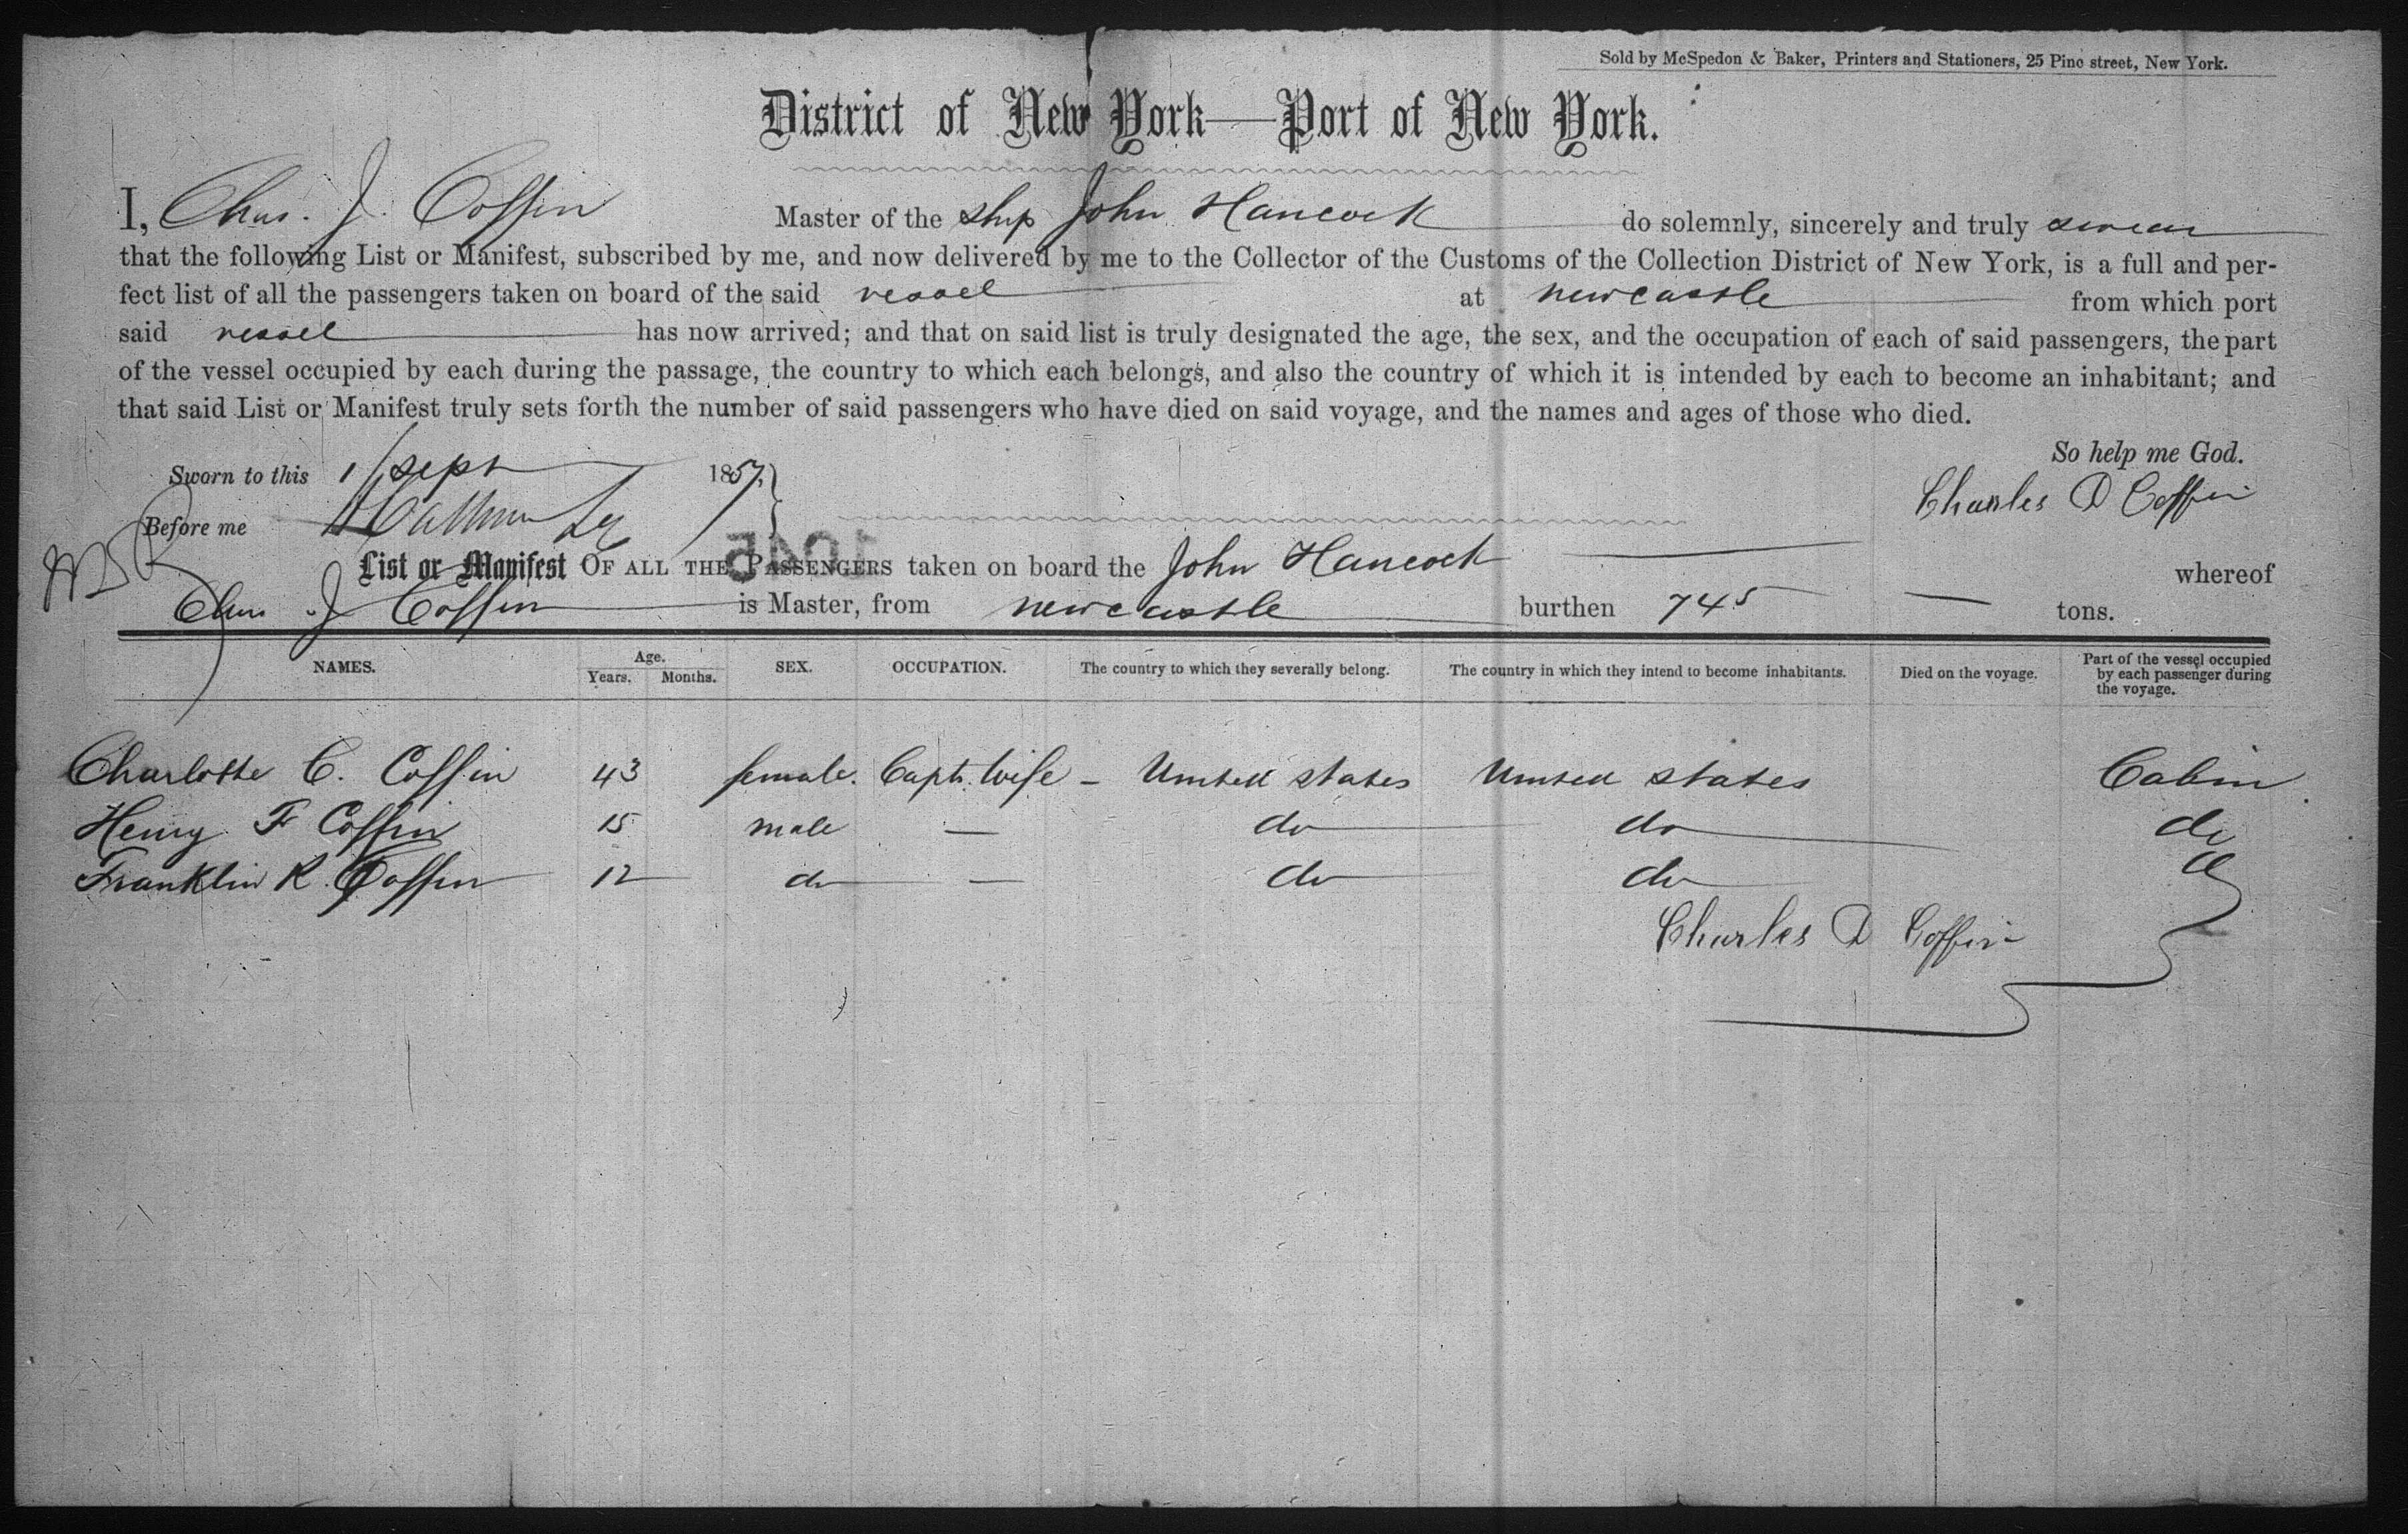 Sold by McSpedon & Baker, Printers and Stationers, 25 Pine street, New York.
District of New York—Port of New York.
I, Chas. J. Coffin Master of the ship John Hancock do solemnly, sincerely and truly swear
that the following List or Manifest, subscribed by me, and now delivered by me to the Collector of the Customs of the Collection District of New York, is a full and per-
fect list of all the passengers taken on board of the said vessel at newcastle from which port
said vessel has now arrived; and that on said list is truly designated the age, the sex, and the occupation of each of said passengers, the part
of the vessel occupied by each during the passage, the country to which each belongs, and also the country of which it is intended by each to become an inhabitant; and
that said List or Manifest truly sets forth the number of said passengers who have died on said voyage, and the names and ages of those who died.
So help me God.
Sworn to this 1 Sept 1857.
Charles D Coffin
Before me
1045
List or Manifest OF ALL THE PASSENGERS taken on board the John Hancock whereof
Chas J Coffin is Master, from newcastle burthen 745 tons.
NAMES. Age. Years. Months. SEX. OCCUPATION. The country to which they severally belong. The country in which they intend to become inhabitants. Died on the voyage. Part of the vessel occupied by each passenger during the voyage.
Charlotte C. Coffin 43 female. Capts. wife – United states United states Cabin
Henry F Coffin 15 male — do do do
Franklin R. Coffin 12 do — do do do
Charles D Coffin